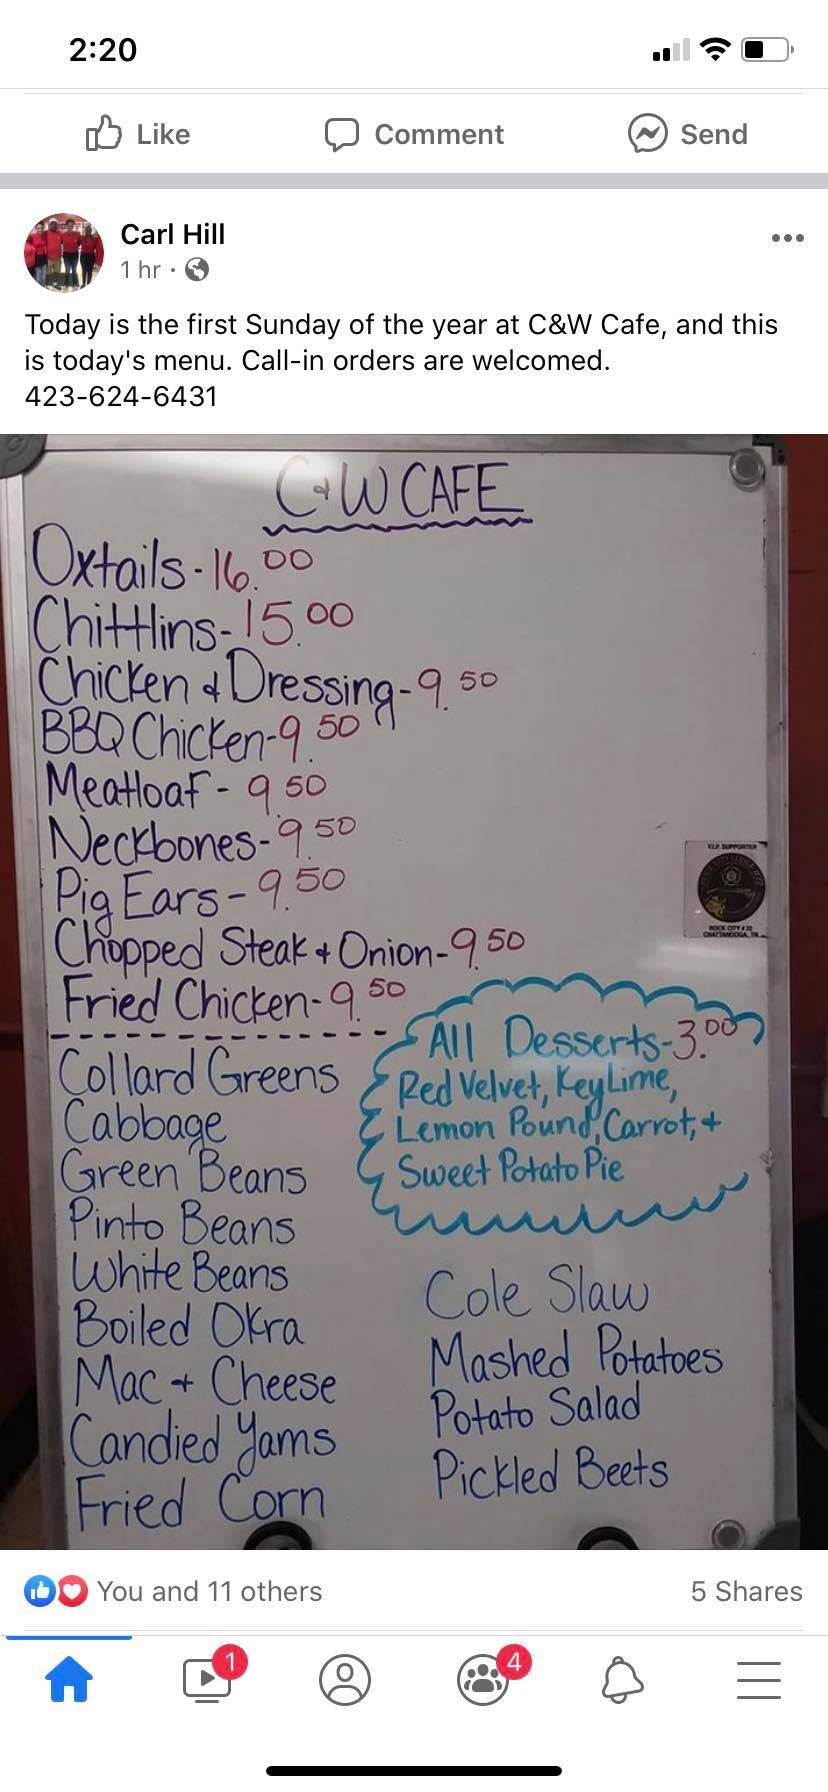 2:20
Like
Comment
Send
Carl Hill
1 hr ·
Today is the first Sunday of the year at C&W Cafe, and this
is today's menu. Call-in orders are welcomed.
423-624-6431
C&W CAFE
Oxtails - 16.00
Chittlins - 15.00
Chicken & Dressing - 9.50
BBQ Chicken - 9.50
Meatloaf - 9.50
Neckbones - 9.50
Pig Ears - 9.50
Chopped Steak + Onion - 9.50
Fried Chicken - 9.50
All Desserts - 3.00
Red Velvet, Key Lime,
Lemon Pound, Carrot, +
Sweet Potato Pie
Collard Greens
Cabbage
Green Beans
Pinto Beans
White Beans
Boiled Okra
Mac + Cheese
Candied Yams
Fried Corn
Cole Slaw
Mashed Potatoes
Potato Salad
Pickled Beets
V.I.P. SUPPORTER
ROCK CITY # 33
CHATTANOOGA, TN
You and 11 others
5 Shares
1
4